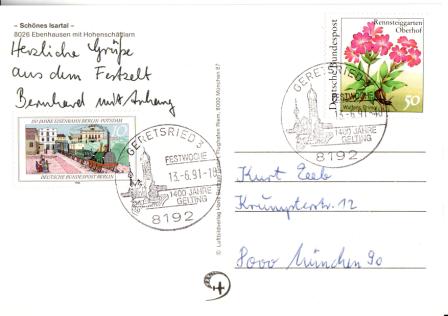 – Schönes Isartal –
8026 Ebenhausen mit Hohenschäftlarn
Herzliche Grüße
aus dem Festzelt
Bernhard mit Anhang
150 JAHRE EISENBAHN BERLIN-POTSDAM
10
DEUTSCHE BUNDESPOST BERLIN
GERETSRIED 3
FESTWOCHE
13.-6.91-18
1400 JAHRE
GELTING
8192
Rennsteiggarten
Oberhof
Deutsche Bundespost
50
GERETSRIED 3
FESTWOCHE
13.-6.91-18
1400 JAHRE
GELTING
8192
Kurt Zeeb
Krumpterstr. 12
8000 München 90